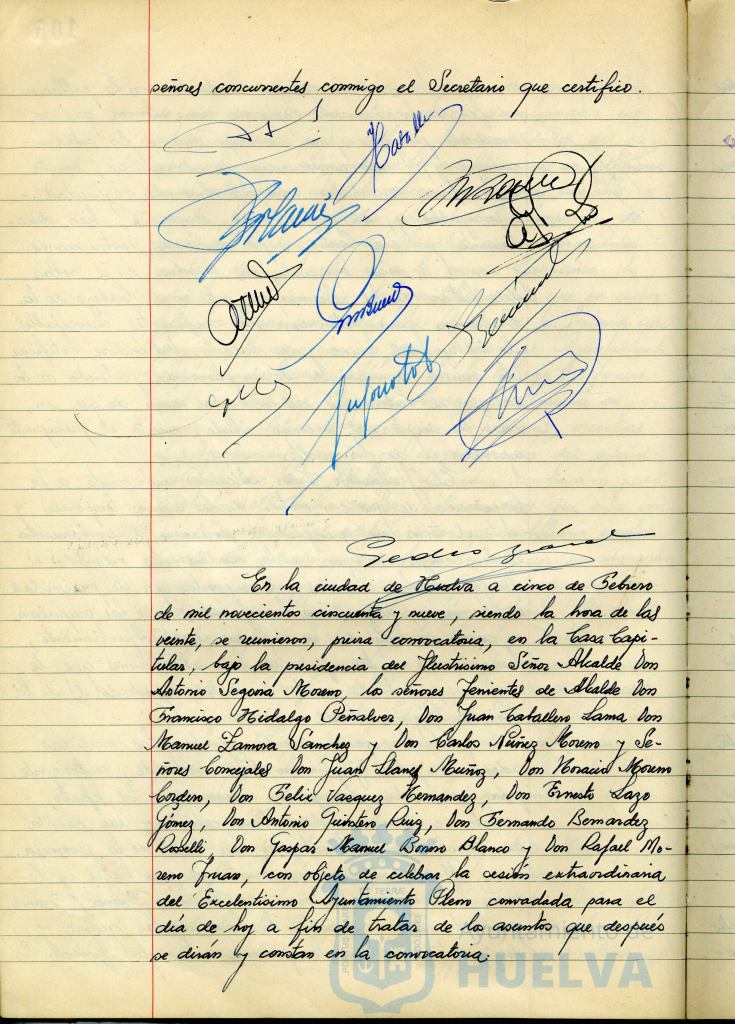 señores concurrentes conmigo el Secretario que certifico.
Pedro
En la ciudad de Huelva a cinco de Febrero
de mil novecientos cincuenta y nueve, siendo la hora de las
veinte, se reunieron, previa convocatoria, en la Casa Capi-
tular, bajo la presidencia del Ilustrisimo Señor Alcalde Don
Antonio Segovia Moreno, los señores Tenientes de Alcalde Don
Francisco Hidalgo Peñalver, Don Juan Caballero Lama Don
Manuel Zamora Sanchez y Don Carlos Nuñez Moreno y Se-
ñores Concejales Don Juan Llanes Muñoz, Don Horacio Moreno
Cordero, Don Felix Vazquez Hernandez, Don Ernesto Lazo
Gómez, Don Antonio Quintero Ruiz, Don Fernando Bernardez
Rosselli, Don Gaspar Manuel Bonoso Blanco y Don Rafael Mo-
reno Juan, con objeto de celebrar la sesión extraordinaria
del Excelentisimo Ayuntamiento Pleno convadada para el
día de hoy a fin de tratar de los asuntos que después
se dirán y constan en la convocatoria.
Ayuntamiento de
HUELVA